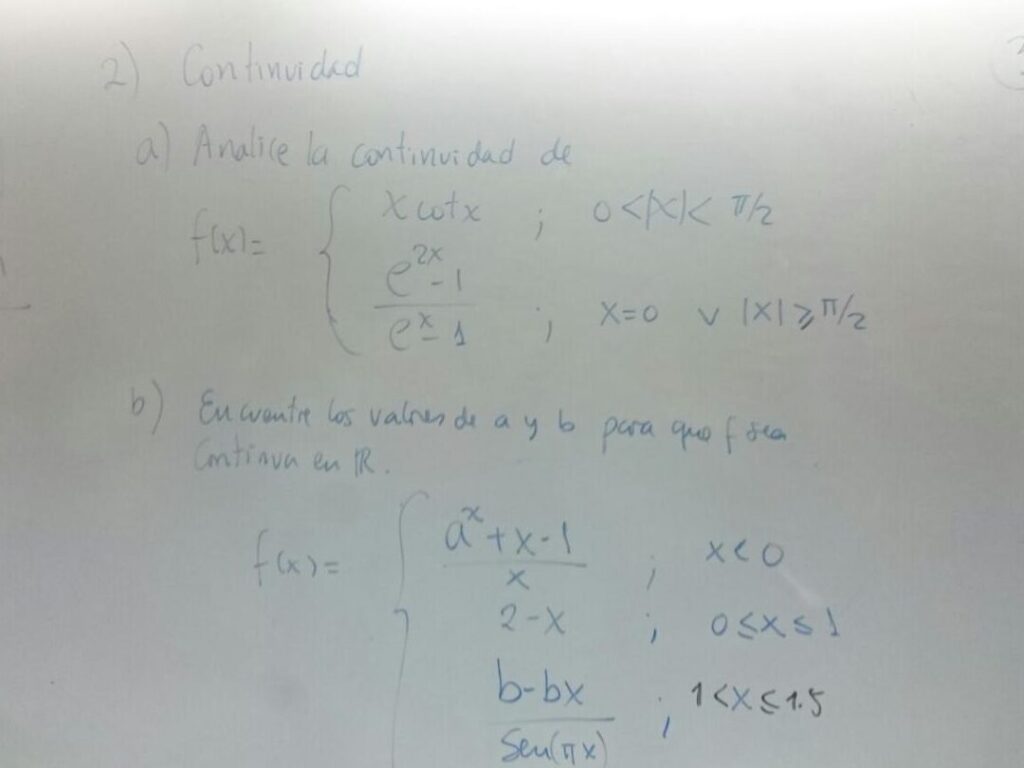 2) Continuidad
a) Analice la continuidad de
f(x)= { x cotx ; 0<|x|< π/2
(e^{2x}-1)/(e^x-1) ; x=0 ∨ |x|≥π/2
b) Encuentre los valores de a y b para que f sea
Continua en ℝ.
f(x)= { (a^x+x-1)/x ; x<0
2-x ; 0≤x≤1
(b-bx)/Sen(πx) ; 1<x≤1.5